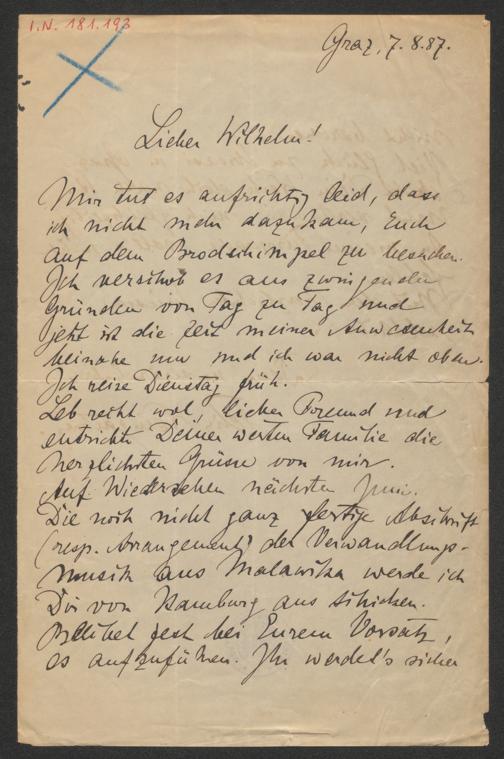 I.N. 181.193
Graz, 7.8.87.
Lieber Wilhelm!
Mir tut es aufrichtig leid, dass
ich nicht mehr dazukam, Euch
auf dem Brodschimpel zu besuchen.
Ich verschob es aus zwingenden
Gründen von Tag zu Tag und
jetzt ist die Zeit meiner Anwesenheit
beinahe um und ich war nicht oben.
Ich reise Dienstag früh.
Leb recht wol, lieber Freund und
entrichte Deiner werten Familie die
herzlichsten Grüsse von mir.
Auf Wiedersehen nächsten Juni.
Die noch nicht ganz fertige Abschrift
(resp. Arrangement) der Verwandlungs-
musik aus Malawika werde ich
Dir von Hamburg aus schicken.
Bleibet fest bei Eurem Vorsatz,
es aufzuführen. Ihr werdet's sicher